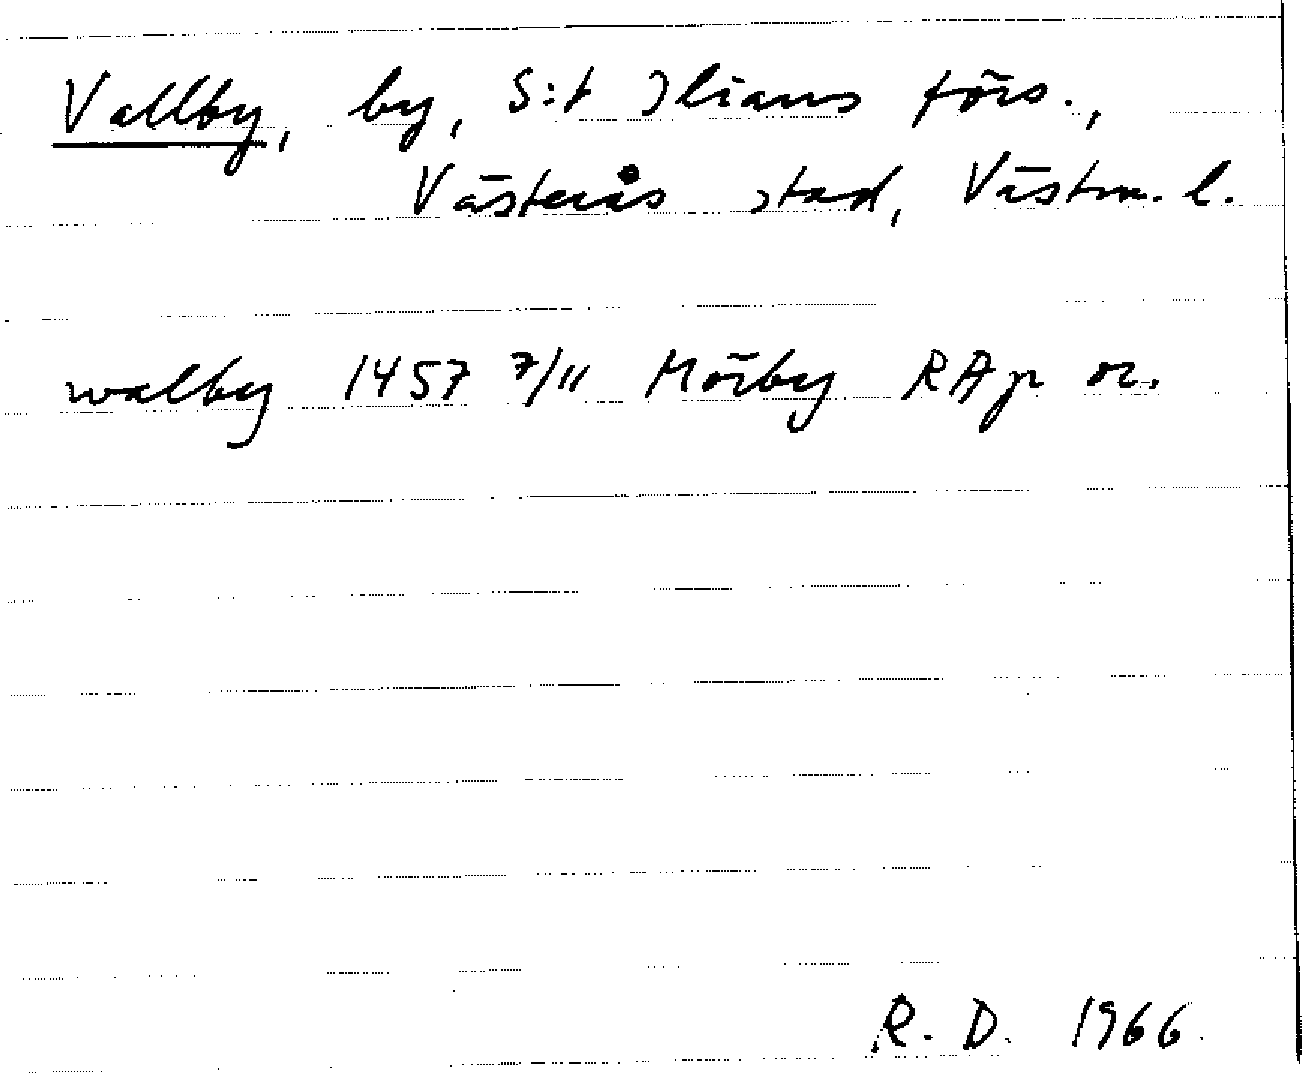 Vallby, by, S:t Ilians förs.,
Västerås stad, Västm. l.
walby 1457 7/11 Mörby RAp or.
R. D. 1966.